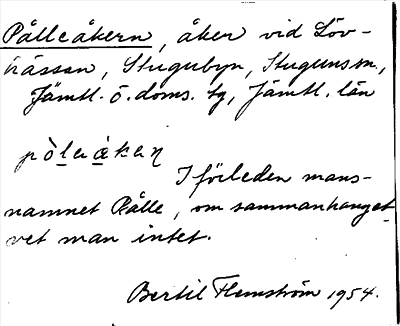 Pålleåkern, åker vid Löv-
hässan, Stugubyn, Stuguns sn,
Jämtl. ö. doms. tg, Jämtl. län
I förleden mans-
namnet Pålle, om sammanhanget
vet man intet.
Bertil Flemström 1954.